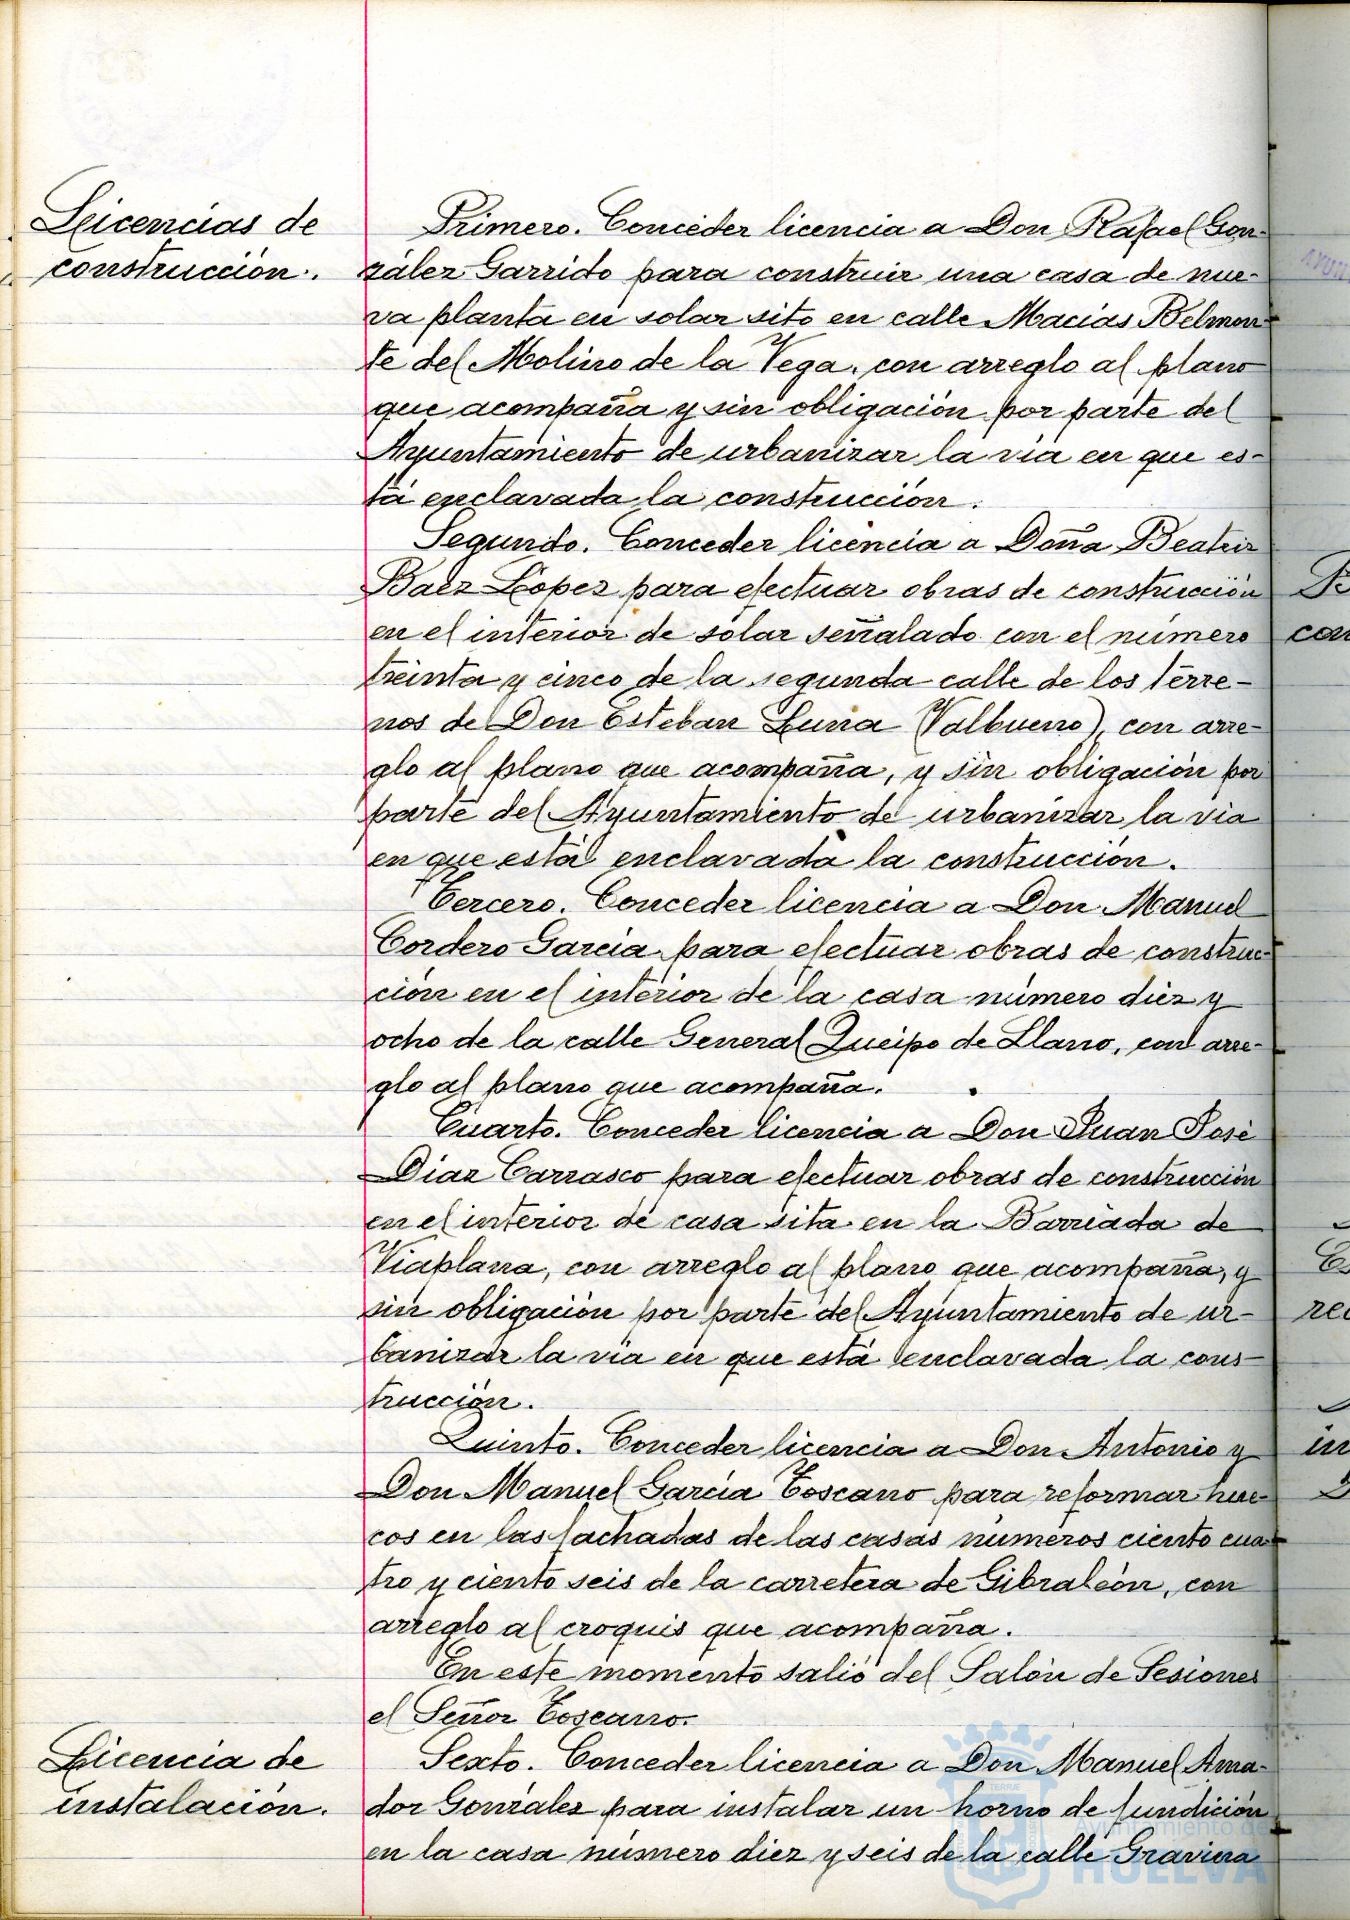 Licencias de
construcción.
Primero. Conceder licencia a Don Rafael Gon-
zález Garrido para construir una casa de nue-
va planta en solar sito en calle Macías Belmon-
te del Molino de la Vega, con arreglo al plano
que acompaña y sin obligación por parte del
Ayuntamiento de urbanizar la via en que es-
tá enclavada la construcción.
Segundo. Conceder licencia a Doña Beatriz
Baez López para efectuar obras de construcción
en el interior de solar señalado con el número
treinta y cinco de la segunda calle de los terre-
nos de Don Esteban Luna (Valbueno), con arre-
glo al plano que acompaña, y sin obligación por
parte del Ayuntamiento de urbanizar la via
en que está enclavada la construcción.
Tercero. Conceder licencia a Don Manuel
Cordero García para efectuar obras de construc-
ción en el interior de la casa número diez y
ocho de la calle General Queipo de Llano, con arre-
glo al plano que acompaña.
Cuarto. Conceder licencia a Don Juan José
Díaz Carrasco para efectuar obras de construcción
en el interior de casa sita en la Barriada de
Viaplana, con arreglo al plano que acompaña, y
sin obligación por parte del Ayuntamiento de ur-
banizar la via en que está enclavada la cons-
trucción.
Quinto. Conceder licencia a Don Antonio y
Don Manuel García Toscano para reformar hue-
cos en las fachadas de las casas números ciento cua-
tro y ciento seis de la carretera de Gibraleón, con
arreglo al croquis que acompaña.
En este momento salió del Salón de Sesiones
el Señor Toscano.
Licencia de
instalación.
Sexto. Conceder licencia a Don Manuel Ama-
dor González para instalar un horno de fundición
en la casa número diez y seis de la calle Gravina
Ayuntamiento de
HUELVA